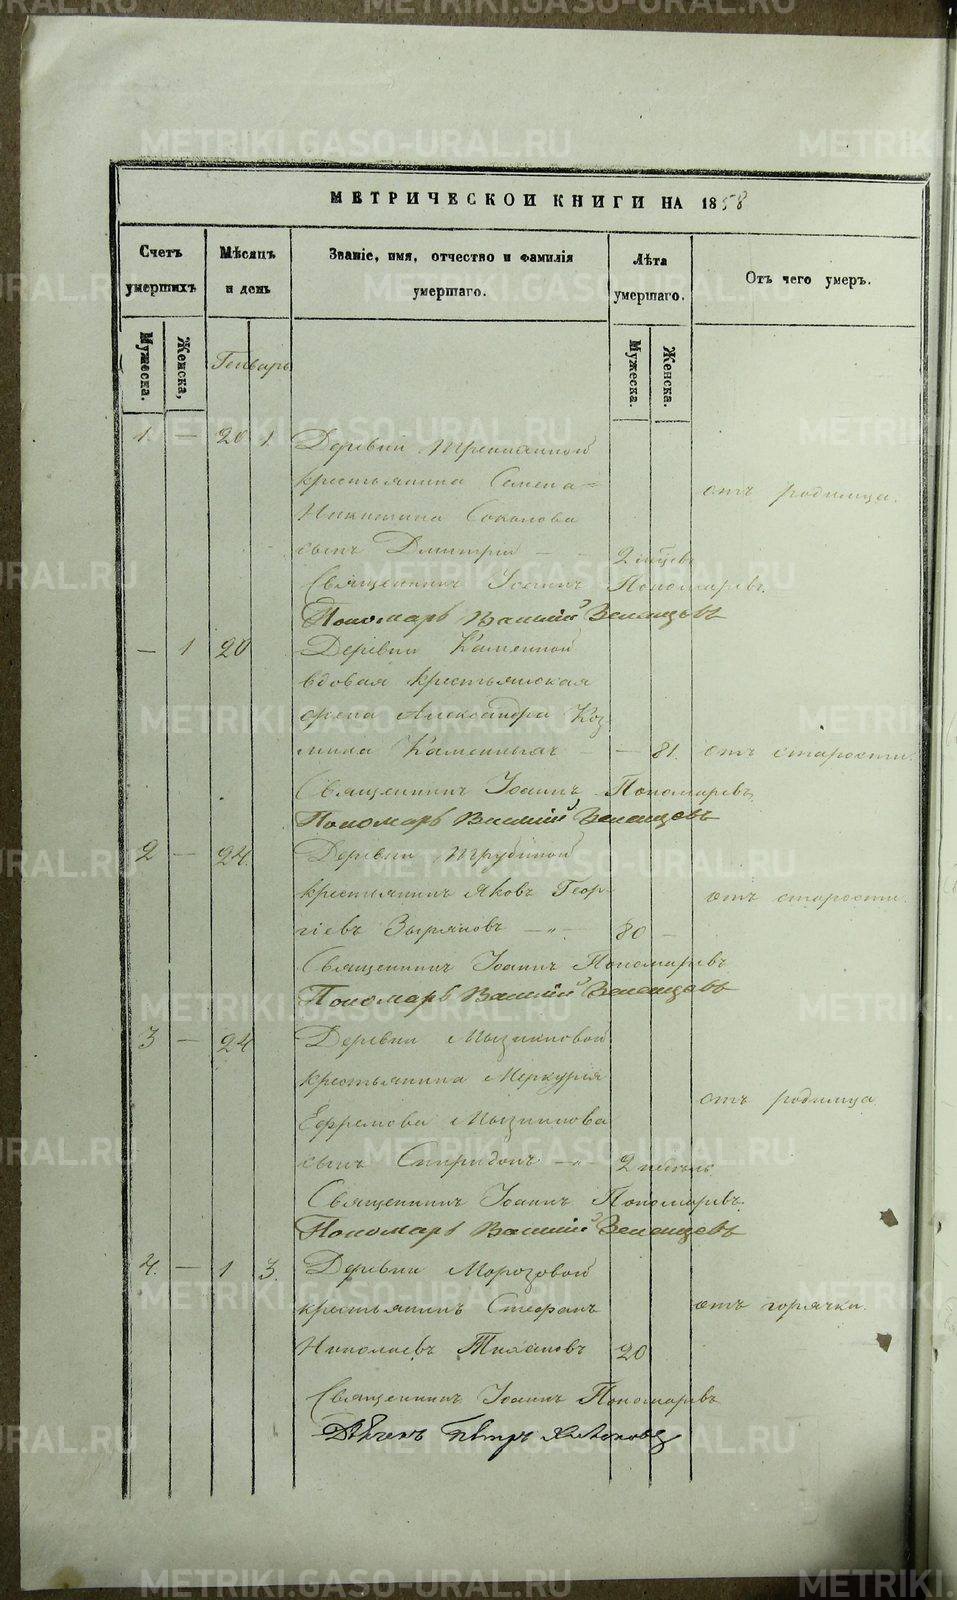 МЕТРИЧЕСКОЙ КНИГИ НА 1858
Счетъ умершихъ
Мѣсяцъ и день
Званіе, имя, отчество и фамилія умершаго.
Лѣта умершаго.
Отъ чего умеръ.
Мужеска.
Женска,
Генварь
Мужеска.
Женска.
1. — 20 1.
Деревни
крестьянина Семена
Никитина Соколова
отъ родимца.
сынъ Димитрій — 2
Священникъ Іоаннъ Пономаревъ.
Пономарь Василій Зеленцовъ
— 1 20
Деревни Каменной
вдовая крестьянская
жена Александра Коз
мина Каменныхъ — — 81. отъ старости.
Священникъ Іоаннъ Пономаревъ
Пономарь Василій Зеленцовъ
2 — 24.
Деревни
крестьянинъ Яковъ Геор-
отъ старости.
гіевъ Зыряновъ — „ — 80 —
Священникъ Іоаннъ Пономаревъ
Пономарь Василій Зеленцовъ
3 — 24
Деревни Мызниковой
крестьянина Меркурія
отъ родимца.
Ефремова Мызникова
сынъ Спиридонъ — „ — 2 недѣль
Священникъ Іоаннъ Пономаревъ.
Пономарь Василій Зеленцовъ
4. — 1 3.
Деревни Морозовой
крестьянинъ Стефанъ
отъ горячки.
Николаевъ 20
Священникъ Іоаннъ Пономаревъ
Петръ
METRIKI.GASO-URAL.RU